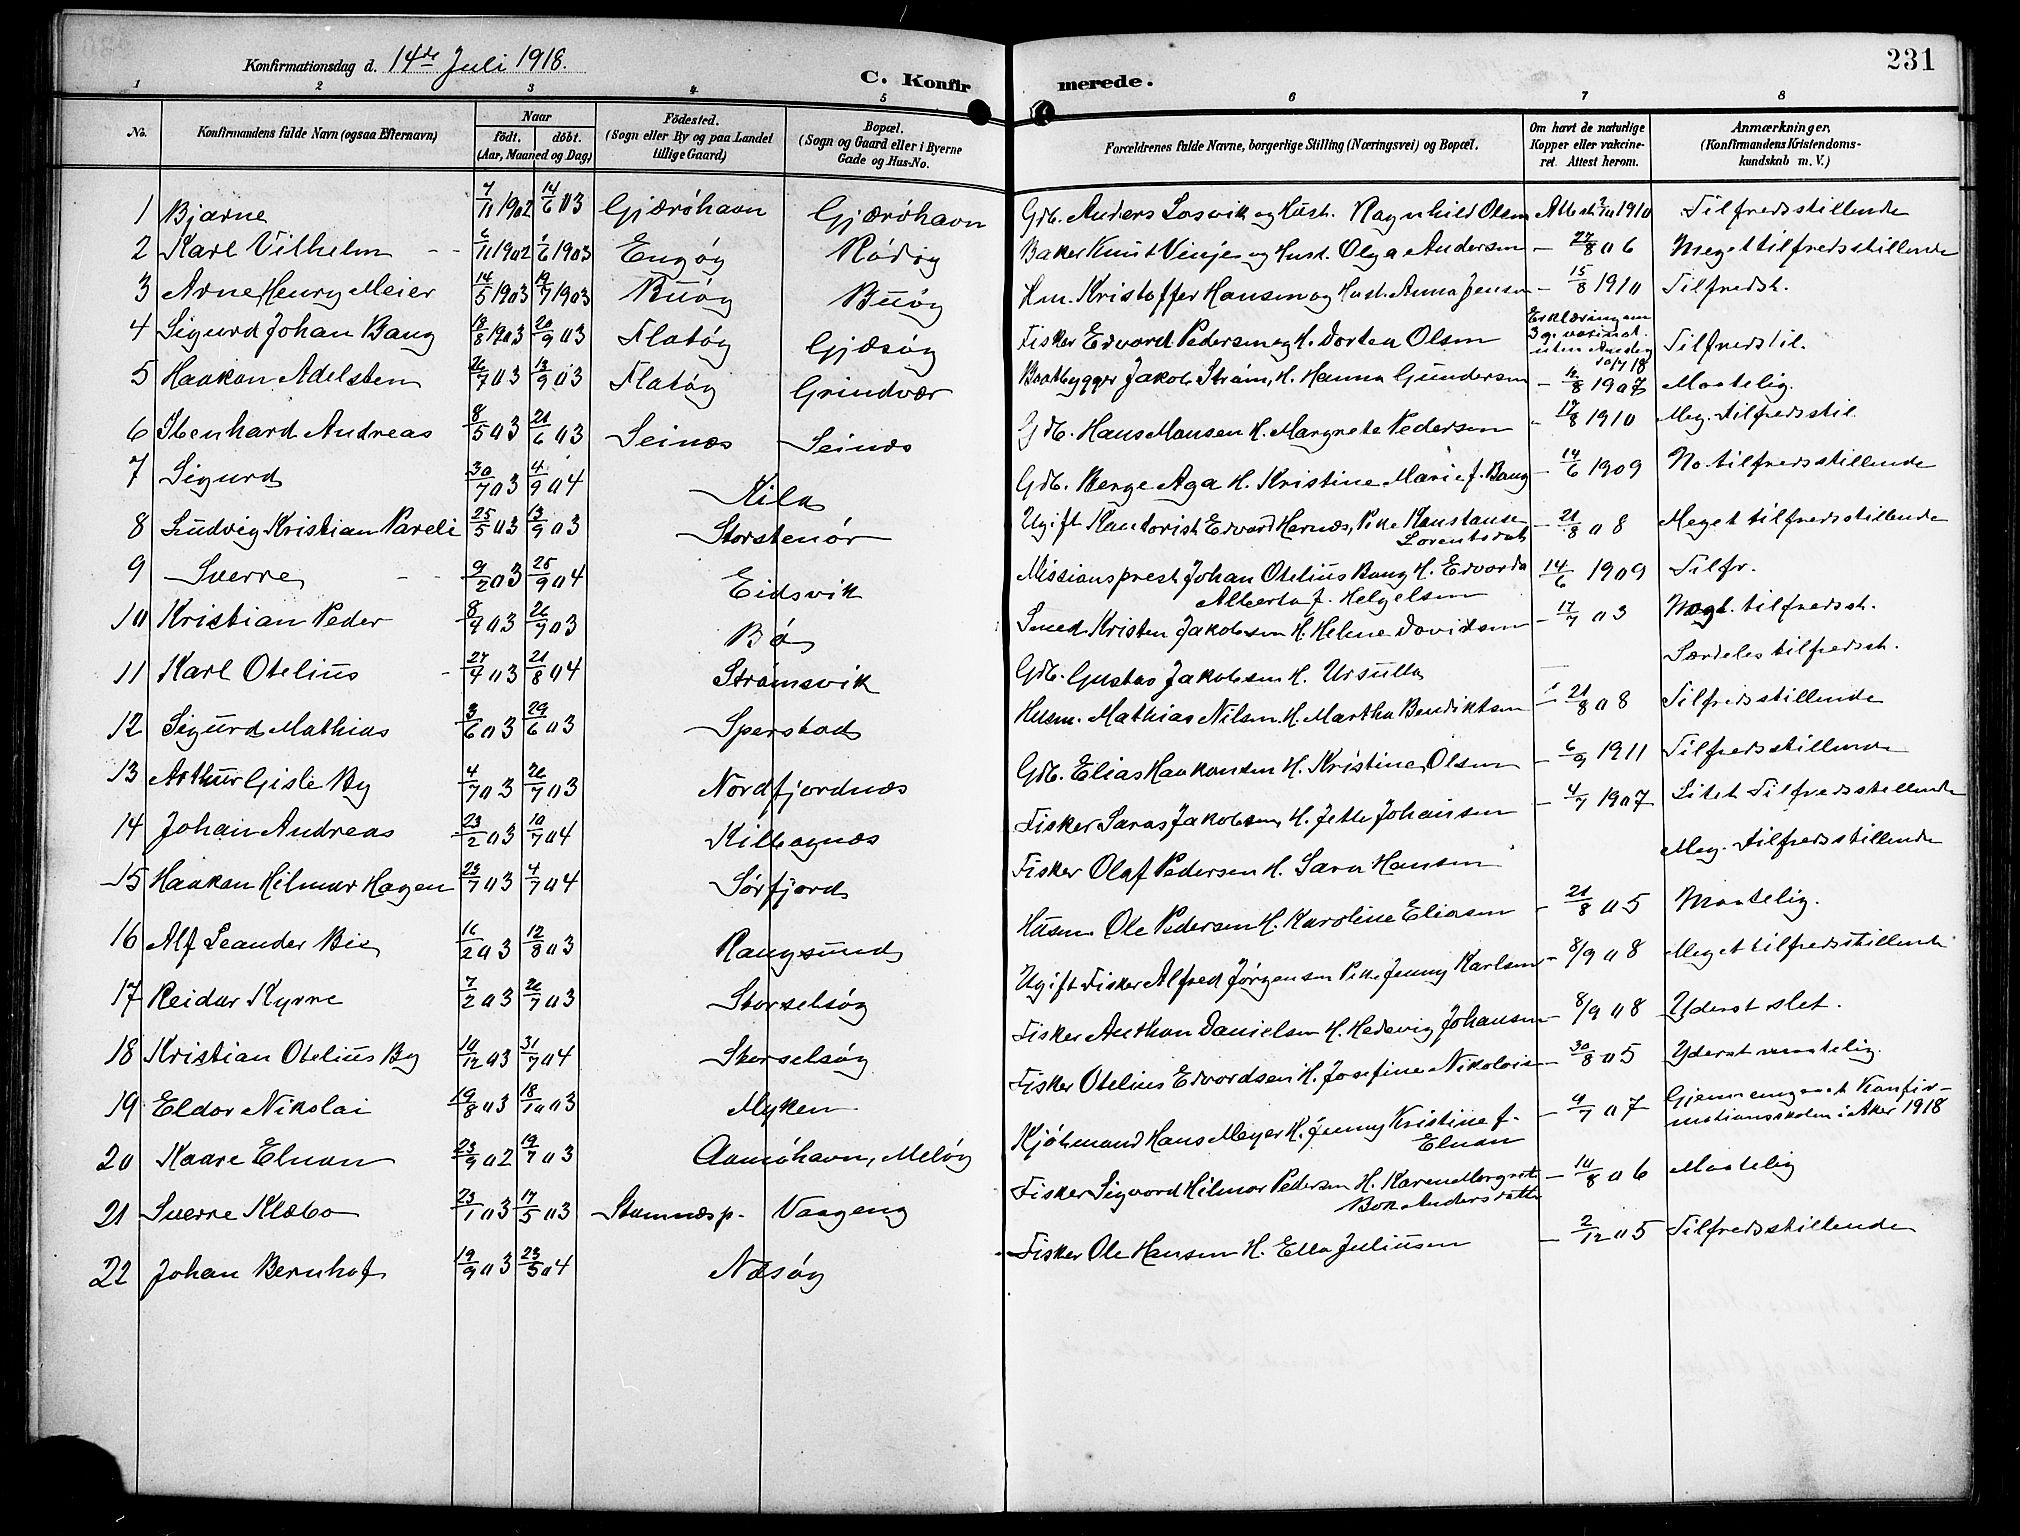 Konfirmationsdag d. 14de Juli 1918.
C. Konfirmerede.
231
1 2 3 4 5 6 7 8
No.
Konfirmandens fulde Navn (ogsaa Efternavn)
Naar
födt. döbt.
(Aar, Maaned og Dag)
Födested.
(Sogn eller By og paa Landet
tillige Gaard)
Bopæl.
(Sogn og Gaard eller i Byerne
Gade og Hus-No.
Forældrenes fulde Navne, borgerlige Stilling (Næringsvei) og Bopæl.
Om havt de naturlige
Kopper eller vakcine-
ret. Attest herom.
Anmærkninger,
(Konfirmandens Kristendoms-
kundskab m. V.)
1 Bjarne 7/11 1902 14/6 03 Gjærøhavn Gjærøhavn Gdb. Anders Losvik og Hust. Ragnhild Olsen Attest 1910 Tilfredsstillende
2 Karl Vilhelm 6/11 1902 1/6 1903 Engøy Rødøy Baker Knut Vinje og Hust. Olga Andersen - 27/8 06 Meget tilfredsstillende
3 Arne Henry Meier 14/5 1903 19/7 1903 Buøy Buøy Hm. Kristoffer Hansen og Hust. Anna Jensen - 15/8 1910 Tilfredst.
4 Sigurd Johan Bang 19/8 1903 20/9 03 Flatøy Gjæsøy Fisker Edvard Pedersen og H. Dorten Olsen Erklæring om
3 g. vasinat.
uten
10/7 18 Tilfredstil.
5 Haakon Adelsten 26/7 03 13/9 03 Flatøy Grindvær Baatbygger Jakob Strøm, H. Hanna Gundersen - 1907 Maatelig.
6 Stenhard Andreas 8/5 03 21/6 03 Seinæs Seinæs Gdb. Hans Monsen H. Margrete Pedersen - 17/8 1910 Meg. tilfredsstil.
7 Sigurd 30/7 03 4/9 04 Kila Gdb. Berge Aga H. Kristine Marie f. Bang - 14/6 1909 No tilfredsstillende
8 Ludvig Kristian Pareli 25/5 03 13/9 03 Storstenør Ugift Kantorist Edvard Hernæs, Pike Konstanse
Lorentsdat. - 21/8 08 Meget tilfredsstillende
9 Sverre 9/2 03 25/9 04 Eidsvik Missionsprest Johan Otelius Bang H. Edvarda
Alberta f. Helgesen 14/6 1909 Tilfr.
10 Kristian Peder 8/4 03 26/7 03 Bø Smed Kristen Jakobsen H. Helene Davidsen - 17/7 03 Nogl. tilfredsst.
11 Karl Otelius 27/4 03 21/8 04 Strømsvik Gdb. Gustav Jakobsen H. Ursulla Særdeles tilfredsst.
12 Sigurd Mathias 3/6 03 29/6 03 Sperstad Husm. Mathias Nilsen H. Martha Bendiktsen - 21/8 08 Tilfredsstillende
13 Arthur Gisle By 4/7 03 26/7 03 Nordfjordnæs Gdb. Elias Haakonsen H. Kristine Olsen - 6/9 1911 Tilfredsstillende
14 Johan Andreas 23/2 03 10/7 04 Kilbognæs Fisker Saras Jakobsen, H. Jette Johansen - 4/7 1907 Litet Tilfredsstillende
15 Haakon Hilmar Hagen 23/7 03 4/7 04 Sørfjord Fisker Olaf Pedersen H. Sara Hansen Meg. tilfredsstillende
16 Alf Leander Bie 16/2 03 12/8 03 Rangsund Husm Ole Pedersen H. Karoline Eliasen - 21/8 05 Maatelig.
17 Reidar Kyrre 7/2 03 26/7 03 Storselsøy Ugift Fisker Alfred Jørgensen Pike Jenny Karlsen - 8/9 08 Meget tilfredsstillende
18 Kristian Otelius By 10/12 03 31/7 04 Storselsøy Fisker Anthon Danielsen H. Hedevig Johansen - 8/9 08 Yderst slet.
19 Eldor Nikolai 19/8 03 18/10 03 Myken Fisker Otelius Edvardsen H. Josefine Nikolaise - 30/8 05 Yderst maatelig.
20 Kaare Elnan 23/9 02 19/7 03 Aamøhavn, Meløy Kjøbmand Hans Meyer H. Jenny Kristine f.
Elnan - 4/7 07 Gjennemgaaet Konfir-
mationsskolen i Aker 1918
21 Sverre Klæbo 23/1 03 17/5 03 Stamnæs p. Vaageng Fisker Sigvard Hilmar Pedersen H. Karen Margrete
Andersdatter - 10/8 06 Maatelig
22 Johan Bernhof 19/9 03 23/5 04 Næsøy Fisker Ole Hansen H. Ella Juliusen - 2/12 05 Tilfredsstillende